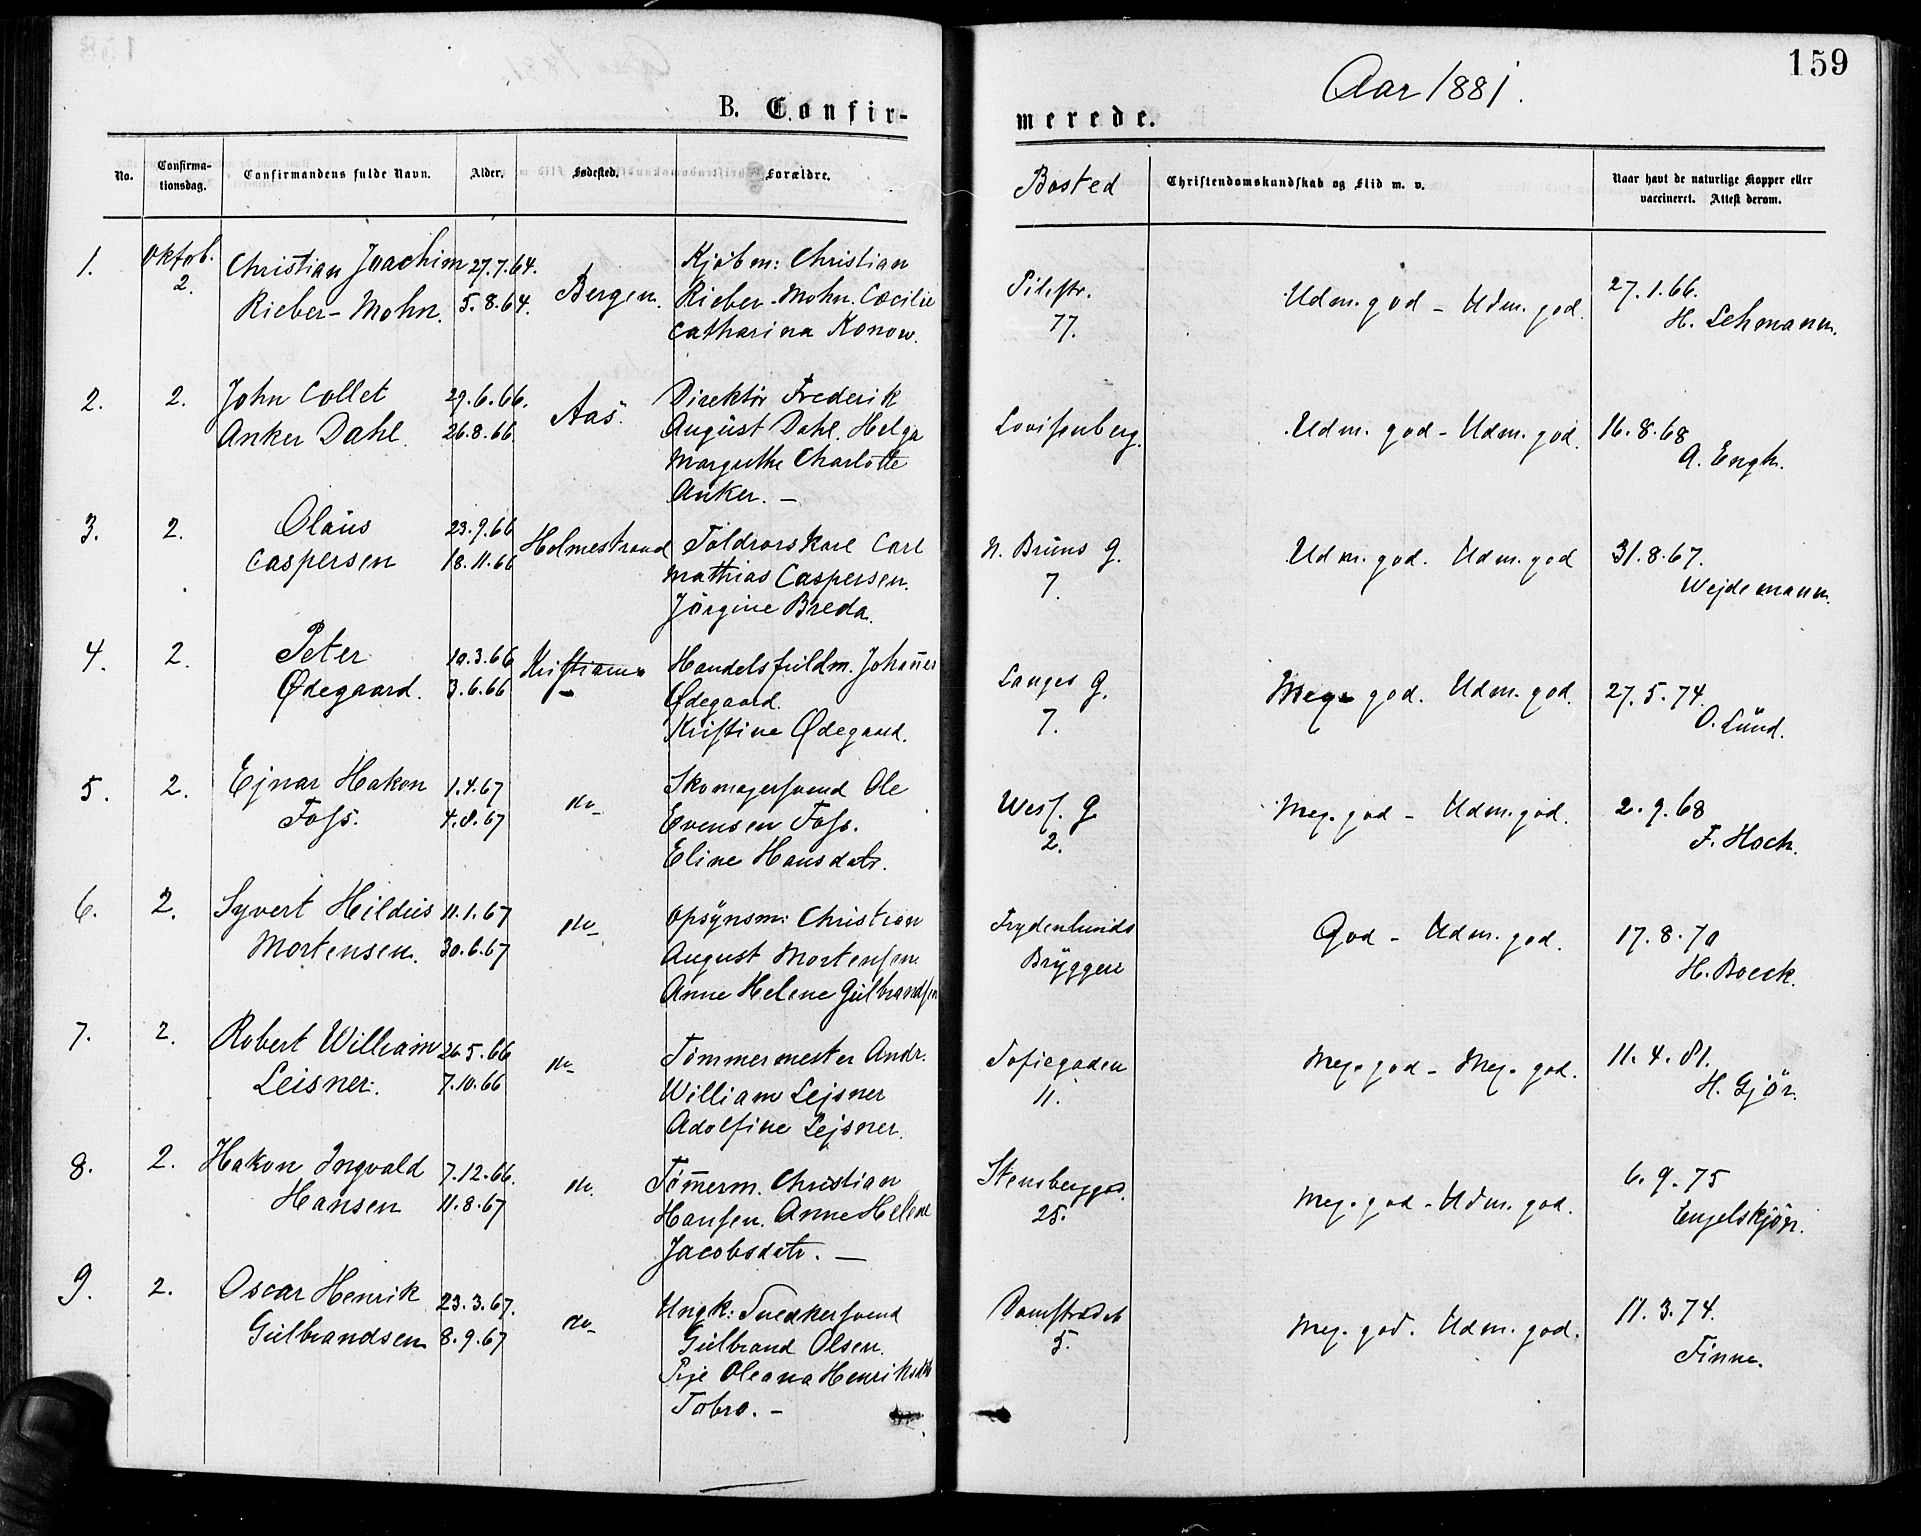 159
Aar 1881.
B. Confir-
merede.
No.
Confirma-
tionsdag.
Confirmandens fulde Navn.
Alder.
Fødested.
Forældre.
Bosted
Christendomskundskab og Flid m. v.
Naar havt de naturlige Kopper eller
vaccineret. Attest derom.
1.
Oktob.
2.
Christian Joachim
Rieber-Mohn.
27.7.64.
5.8.64.
Bergen.
Kjøbm: Christian
Rieber-Mohn. Cæcilie
Catharina Konow.
Pilestr.
77.
Udm. god - Udm. god.
27.1.66.
H. Lehmann.
2.
2.
John Collet
Anker Dahl.
29.6.66.
26.8.66
Aas.
Direktør Frederik
August Dahl. Helga
Margrethe Charlotte
Anker. -
Lovisenberg.
Udm. god - Udm. god.
16.8.68
A. Engh.
3.
2.
Olaus
Caspersen
23.9.66
18.11.66
Holmestrand
Toldrorskarl Carl
Mathias Caspersen.
Jörgine Breda.
N. Bruns G.
7.
Udm. god. Udm. god
31.8.67.
Wejdemann.
4.
2.
Peter
Ødegaard.
10.3.66
3.6.66
Kristiania
Handelsfuldm. Johañes
Ødegaard.
Kristine Ødegaard.
Langes G.
7.
Meg. god. Udm. god.
27.5.74.
O. Lund.
5.
2.
Ejnar Hakon
Foss.
1.4.67
4.8.67
do
Skomagersvend Ole
Evensen Foss.
Eline Hansdatr.
Wess. G
2.
Meg. god - Udm. god.
2.9.68
F. Hoch.
6.
2.
Syvert Hildus
Mortensen.
11.1.67
30.6.67
do
Opsynsm: Christian
August Mortensen.
Anne Helene Gulbrandsen
Frydenlunds
Bryggeri
God - Udm. god.
17.8.70
H. Boeck.
7.
2.
Robert William
Leisner.
26.5.66
7.10.66
do
Tömmermester Andr.
William Lejsner
Adolfine Lejsner.
Sofiegaden
11.
Meg. god - Meg. god.
11.4.81.
H. Gjør.
8.
2.
Hakon Ingvald
Hansen
7.12.66.
11.8.67
do.
Töm̄erm. Christian
Hansen. Anne Helene
Jacobsdatr. -
Stensbergg.
25.
Meg. god - Udm. god.
6.9.75
Engelskjøn.
9.
2.
Oscar Henrik
Gulbrandsen
23.3.67.
8.9.67
do
Ungk: Snedkersvend
Gulbrand Olsen.
Pige Oleana Henriksdtr
Tobro. -
Damstrædet
5.
Meg. god. Udm. god.
17.3.74.
Finne.